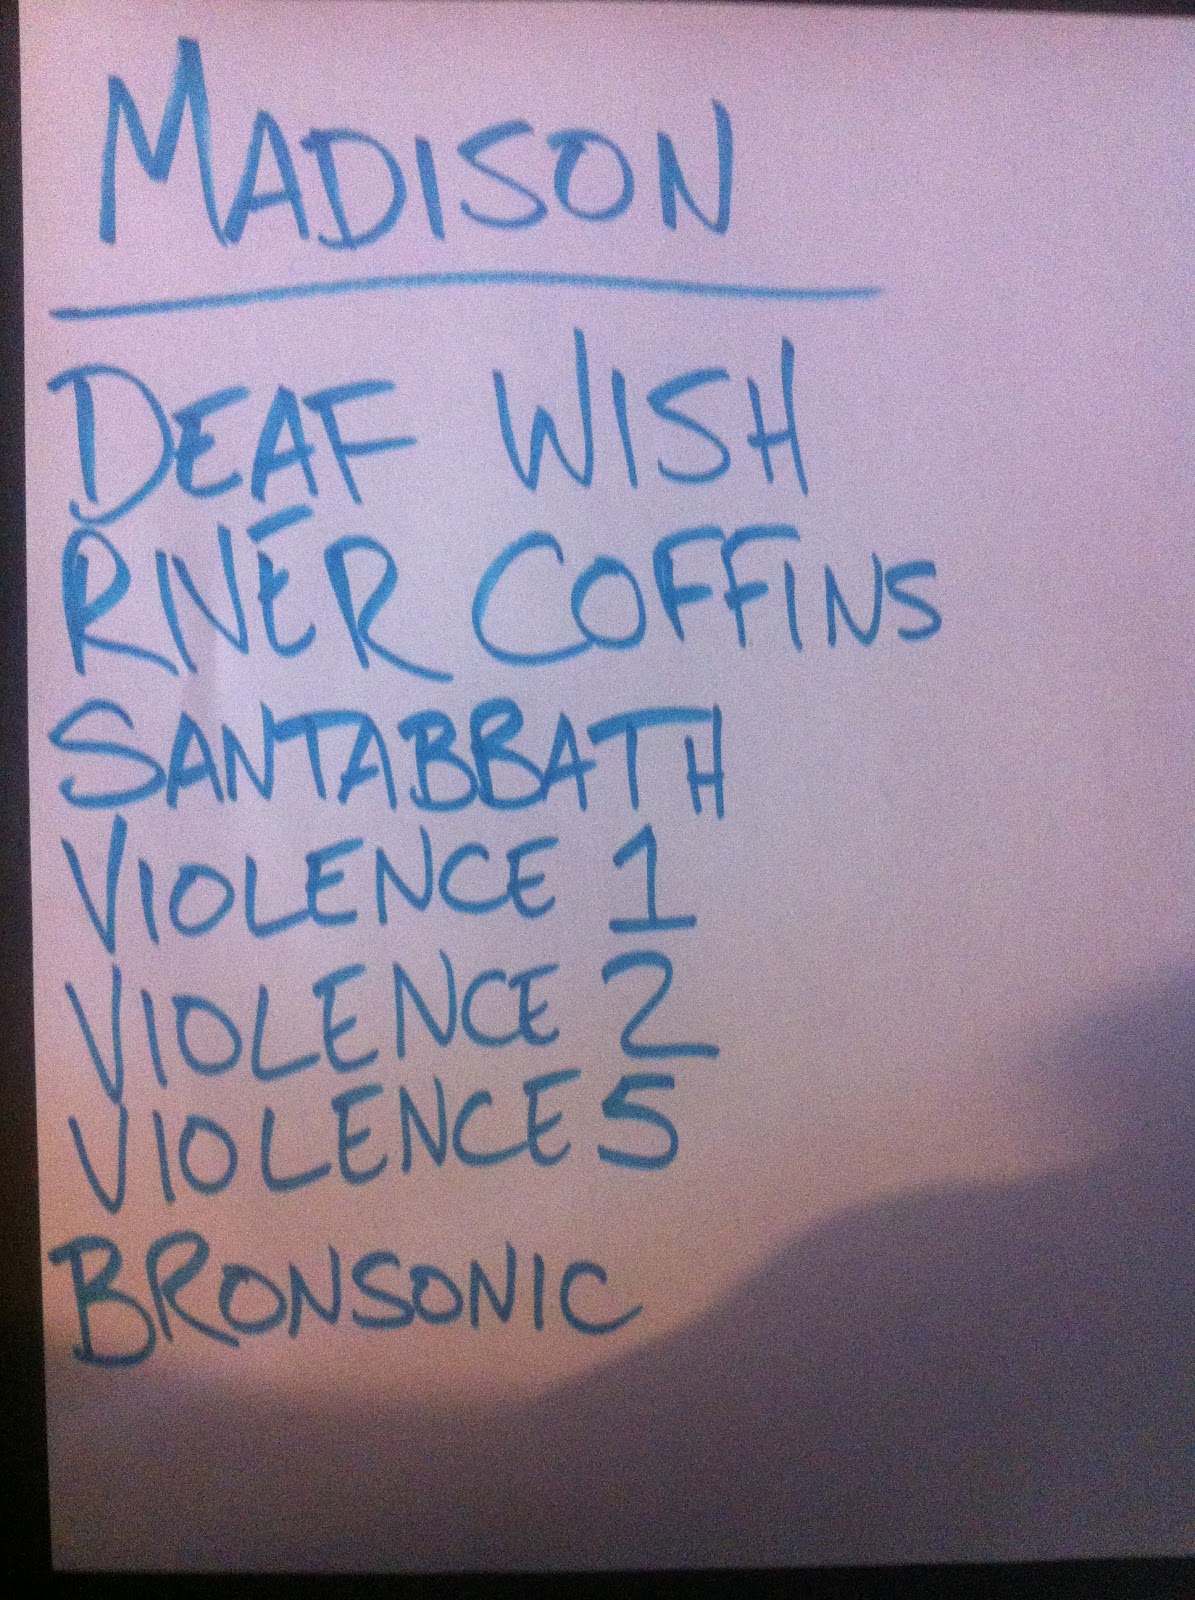 MADISON
DEAF WISH
RIVER COFFINS
SANTABBATH
VIOLENCE 1
VIOLENCE 2
VIOLENCE 5
BRONSONIC